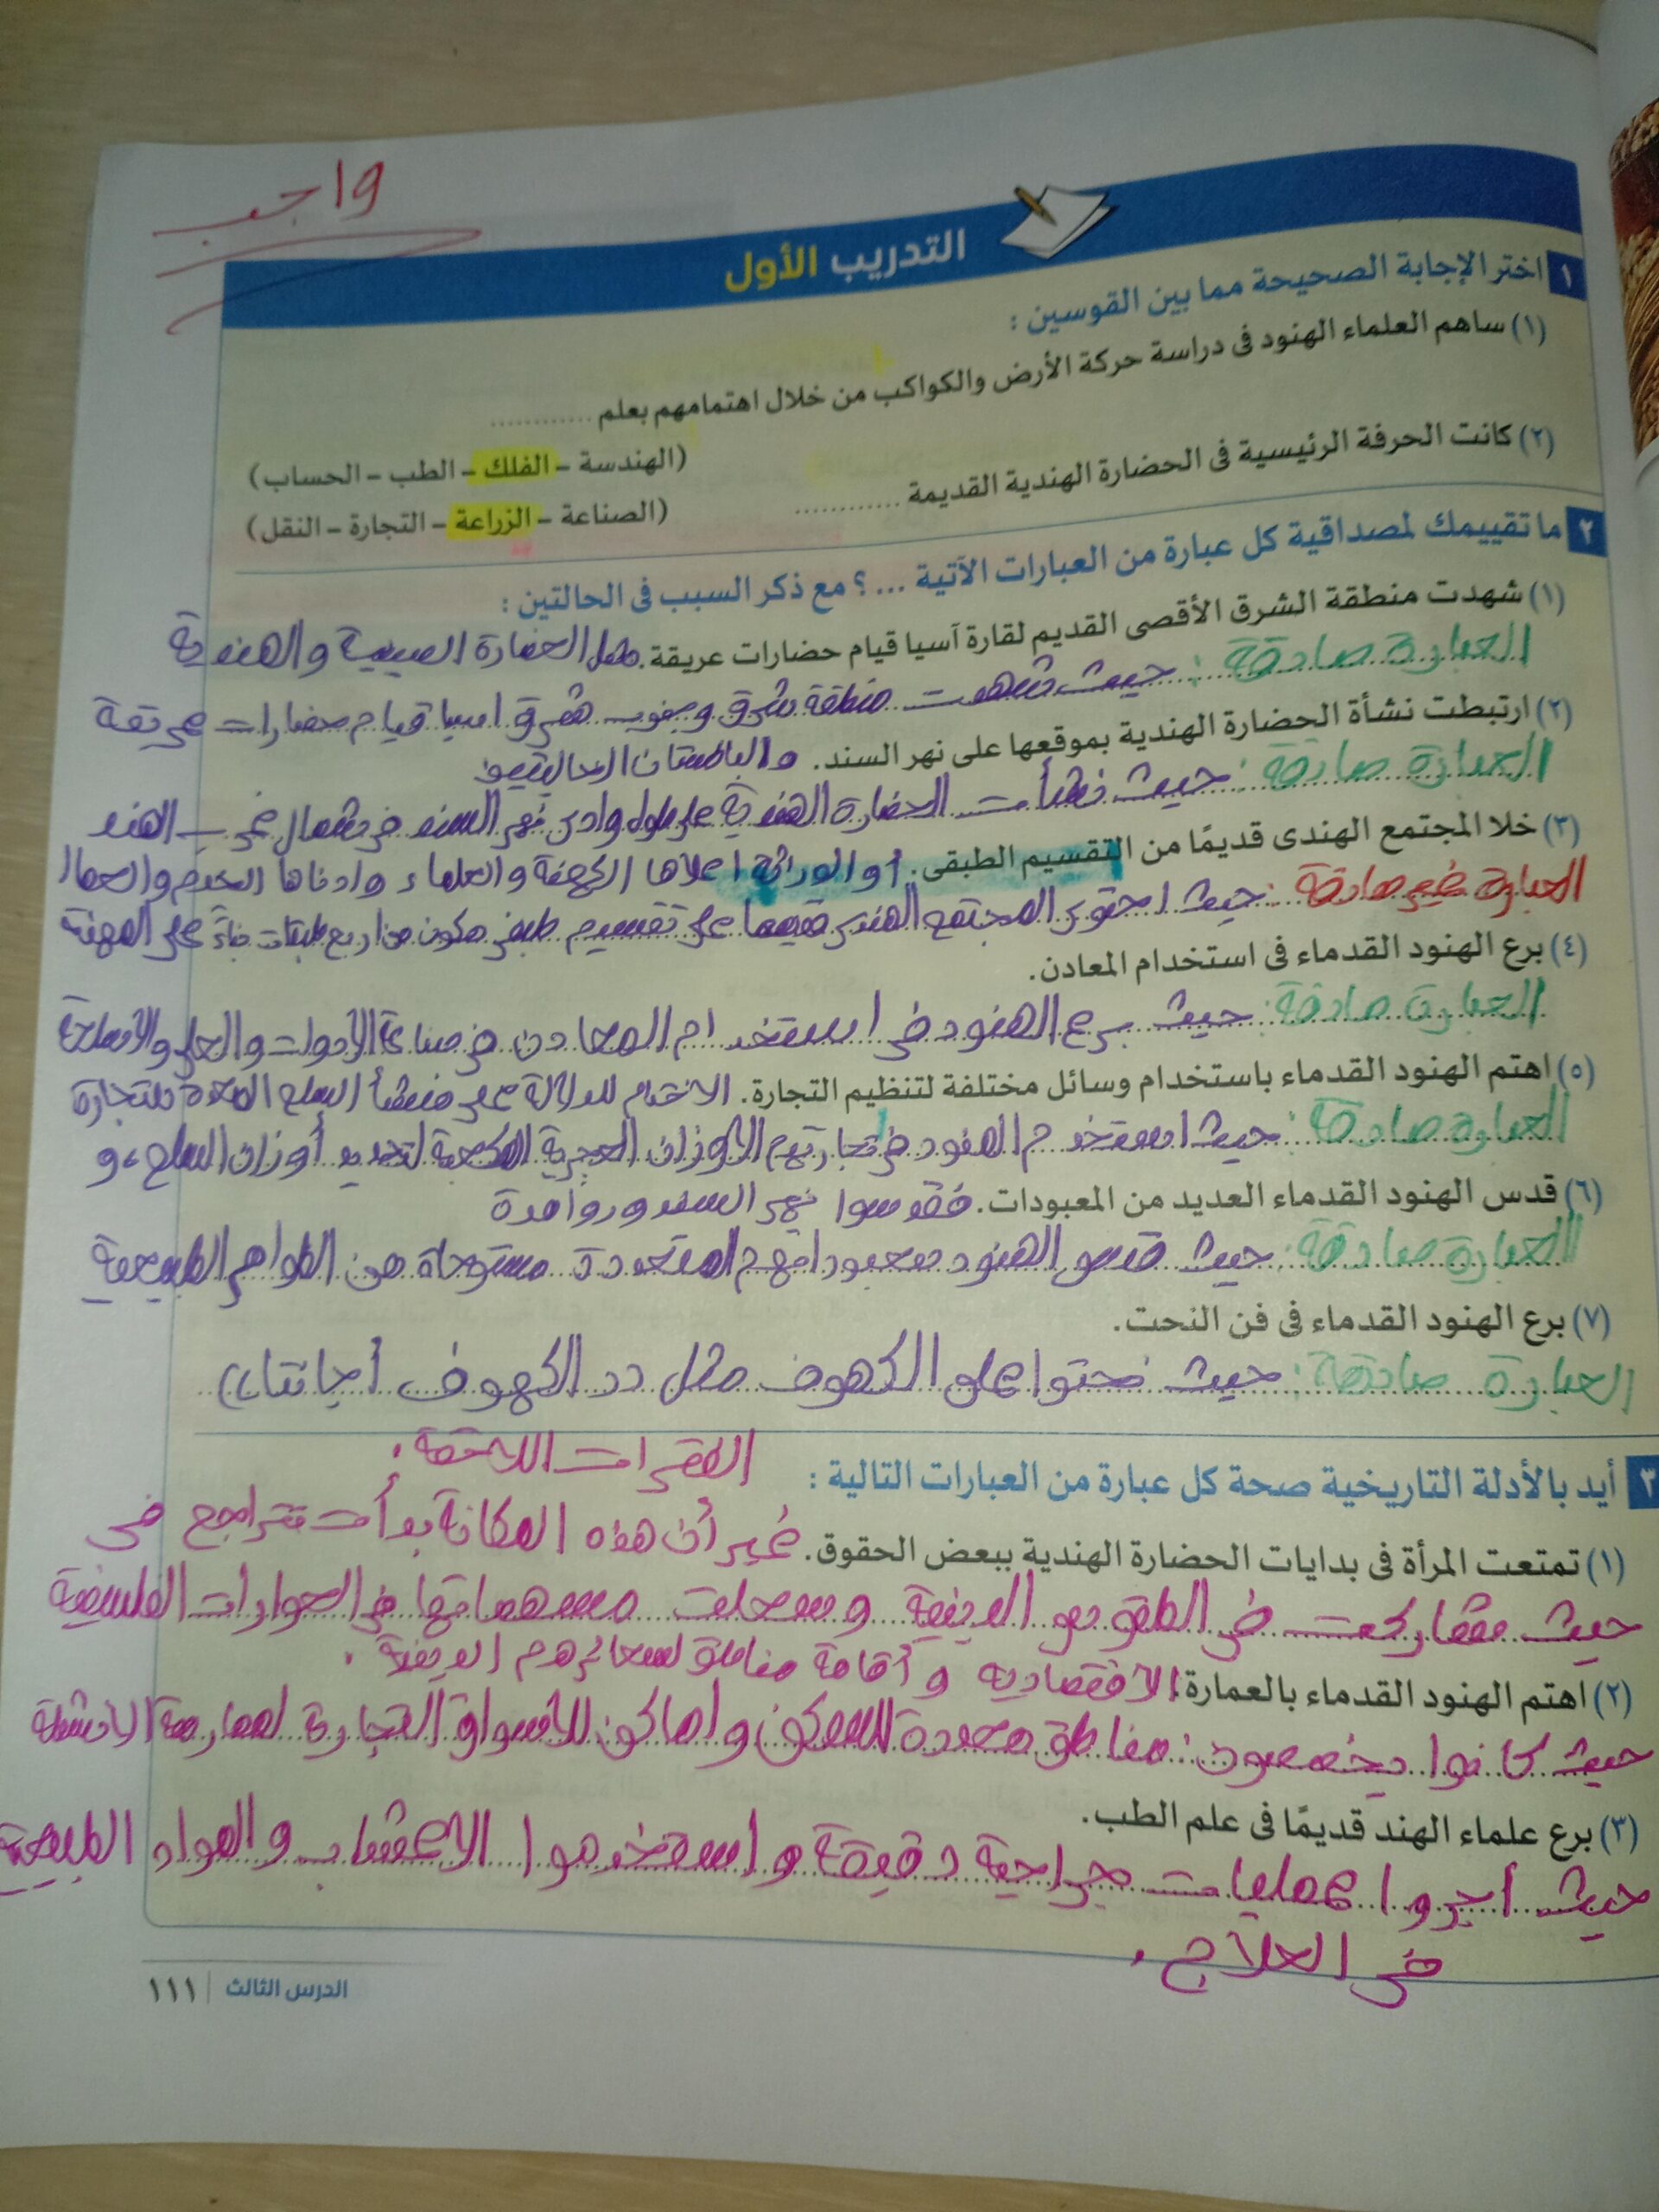 واجب
التدريب الأول
١ اختر الإجابة الصحيحة مما بين القوسين :
(١) ساهم العلماء الهنود فى دراسة حركة الأرض والكواكب من خلال اهتمامهم بعلم ............
(الهندسة - الفلك - الطب - الحساب)
(٢) كانت الحرفة الرئيسية فى الحضارة الهندية القديمة ............
(الصناعة - الزراعة - التجارة - النقل)
٢ ما تقييمك لمصداقية كل عبارة من العبارات الآتية ... ؟ مع ذكر السبب فى الحالتين :
(١) شهدت منطقة الشرق الأقصى القديم لقارة آسيا قيام حضارات عريقة. مثل الحضارة الصينية والهندية
العبارة صادقة : حيث شهدت منطقة شرق وجنوب شرق اسيا قيام حضارات عريقة
(٢) ارتبطت نشأة الحضارة الهندية بموقعها على نهر السند. والباكستان الحاليتين
العبارة صادقة : حيث نشأت الحضارة الهندية على طول وادى نهر السند فى شمال غرب الهند
(٣) خلا المجتمع الهندى قديمًا من التقسيم الطبقى. أو الوراثة أعلاها الكهنة والعلماء وادناها الخدم والعمال
العبارة غير صادقة : حيث احتوى المجتمع الهندى قديما على تقسيم طبقى مكون من اربع طبقات بناءً على المهنة
(٤) برع الهنود القدماء فى استخدام المعادن.
العبارة صادقة : حيث برع الهنود فى استخدام المعادن فى صناعة الأدوات والحلى والأسلحة
(٥) اهتم الهنود القدماء باستخدام وسائل مختلفة لتنظيم التجارة. الاختام للدلالة على منشأ السلع المعدة للتجارة
العبارة صادقة : حيث استخدم الهنود فى تجارتهم الأوزان الحجرية المكعبة لتحديد أوزان السلع، و
(٦) قدس الهنود القدماء العديد من المعبودات. فقدسوا نهر السند وروافده
العبارة صادقة : حيث قدس الهنود معبوداتهم المتعددة مستوحاة من الظواهر الطبيعية
(٧) برع الهنود القدماء فى فن النحت.
العبارة صادقة : حيث نحتوا على الكهوف مثل دد الكهوف أجانتا))
الفترات اللاحقة.
٣ أيد بالأدلة التاريخية صحة كل عبارة من العبارات التالية :
(١) تمتعت المرأة فى بدايات الحضارة الهندية ببعض الحقوق. غير أن هذه المكانة بدأت تتراجع فى
حيث شاركت فى الطقوس الدينية وسجلت مساهماتها فى الحوارات الفلسفية
(٢) اهتم الهنود القدماء بالعمارة. الاقتصادية وأقامة لشعائرهم الدينية.
حيث كانوا يخصصون مناطق محددة للسكن واماكن للأسواق التجارية لممارسة الانشطة
(٣) برع علماء الهند قديمًا فى علم الطب.
حيث أجروا عمليات جراحية دقيقة واستخدموا الاعشاب والمواد الطبيعية
فى العلاج.
الدرس الثالث | ١١١